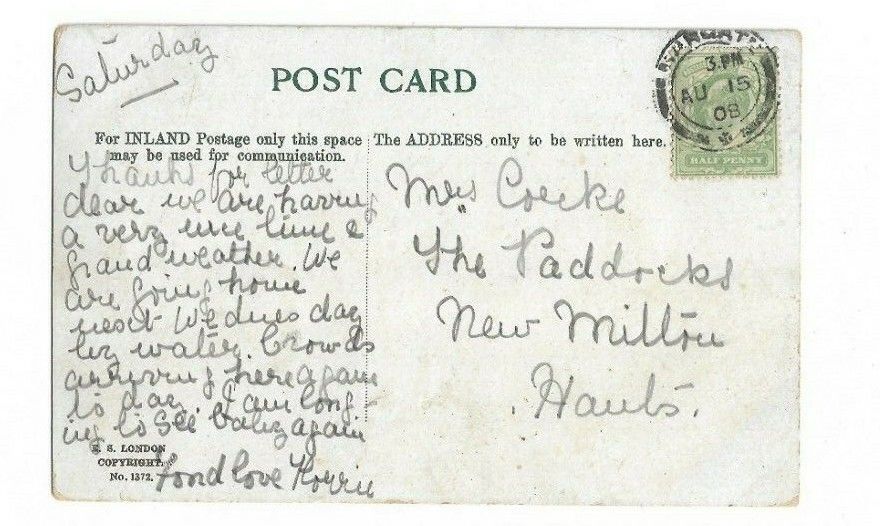 Saturday
POST CARD
3.PM
AU 15
08
HALF PENNY
For INLAND Postage only this space
may be used for communication.
The ADDRESS only to be written here.
Thanks for letter
dear we are having
a very nice time &
grand weather. We
are going home
next Wednesday
by water. Crowds
arriving here again
to day. I am long
ing to see baby again
Fond love
Mrs Cocke
The Paddocks
New Milton
Hants.
S. LONDON
COPYRIGHT.
No. 1372.